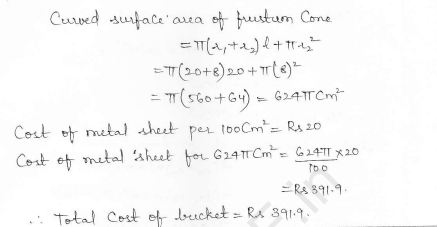 Curved surface area of frustum Cone
= π(r₁+r₂)l + πr₂²
= π(20+8)20 + π(8)²
= π(560+64) = 624π Cm²
Cost of metal sheet per 100Cm² = Rs 20
Cost of metal sheet for 624π Cm² = 624π/100 × 20
= Rs 391.9.
∴ Total Cost of bucket = Rs 391.9.